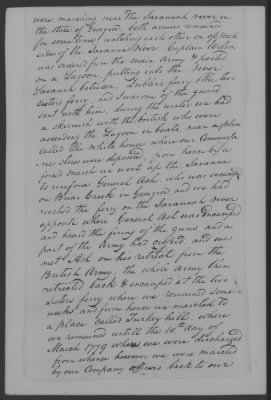 were marching near the Savannah river in
the State of Georgia both armies remained
for some time watching each other on opposite
sides of the Savannah River. Captain
was ordered from the main Army & posted
on a Lagoon putting into the River
Savanah between Zublies ferry & the two
sisters ferry, and I was one of the guard
sent with him, during the winter we had
a skirmish with the British who were
ascending the Lagoon in boats near a place
called the White house where our Commissa
ries stores were deposited, from hence by a
forced march we went up the Savanna
to reinforce General Ash who was encamped
on Briar Creek in Georgia and we had
reached the ferry on the Savannah River
opposite where General Ash was encamped
and heard the firing of the guns and a
part of the Army had crossed, and we
met Ash on his retreat from the
British Army, the whole Army then
retreated back & encamped at the two
sisters ferry where we remained some
weeks and from hence we marched to
a place called Turkey hill, where
we remained untill the 10th day of
March 1779 when we were discharged
from whence however we were marched
by our Company officers back to our